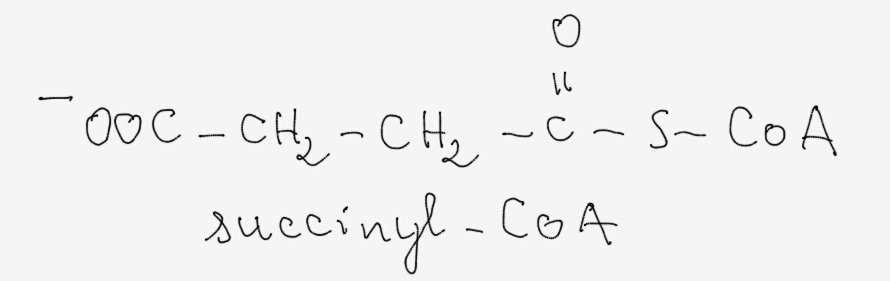 O
||
⁻OOC - CH₂ - CH₂ - C - S - CoA
succinyl - CoA